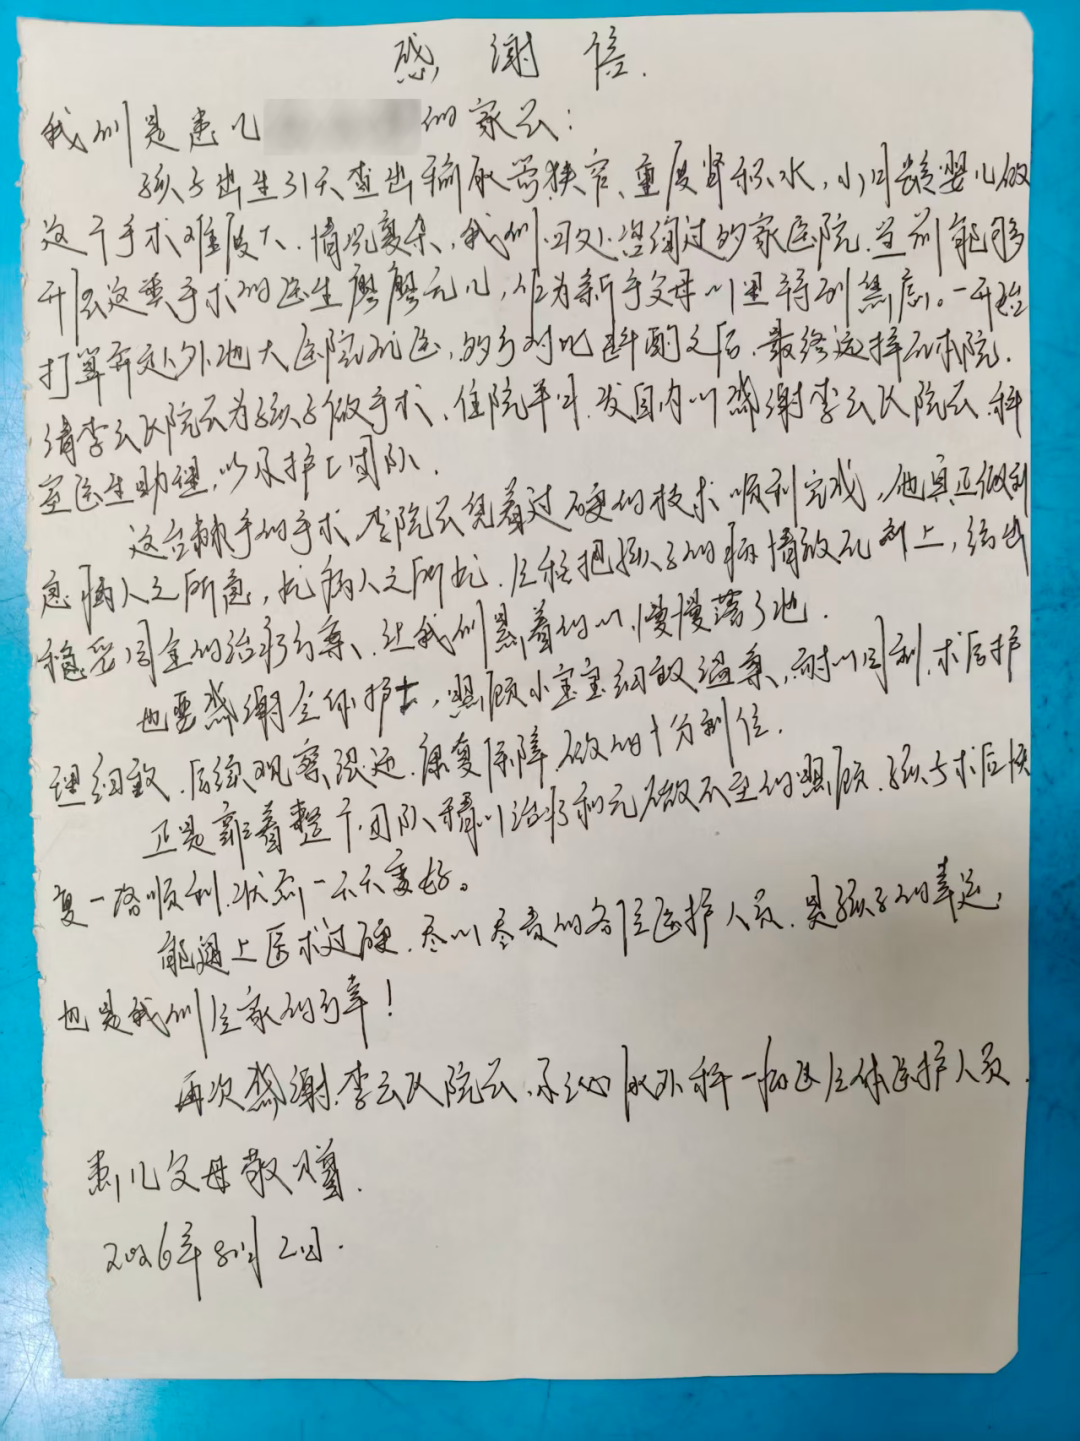 感谢信.
我们是患儿 的家长:
孩子出生31天查出输尿管狭窄、重度肾积水,小月龄婴儿做
这个手术难度大、情况复杂,我们四处咨询过的家医院,当前能够
开展这类手术的医生寥寥无几,作为新手父母心里特别焦虑。一开始
打算奔赴外地大医院就医,的多对比斟酌之后,最终选择在本院.
请李云飞院长为孩子做手术、住院半月,发自内心感谢李云飞院长、科
室医生助理,以及护士团队.
这台棘手的手术,李院长凭着过硬的技术顺利完成,他真正做到
急病人之所急,忧病人之所忧.全程把孩子的病情放在心上,给出
稳妥周全的治疗方案、让我们悬着的心,慢慢落了地.
也要感谢全体护士,照顾小宝宝细致温柔,耐心周到,术后护
理细致、后续观察 康复保障,做的十分到位.
正是靠着整个团队精心治疗和无微不至的照顾,孩子术后恢
复一路顺利,状态一天天变好。
能遇上医术过硬、尽心尽责的各位医护人员,是孩子的幸运,
也是我们全家的万幸!
再次感谢李云飞院长、小儿泌尿外科一病区全体医护人员.
患儿父母敬赠.
2026年8月2日.